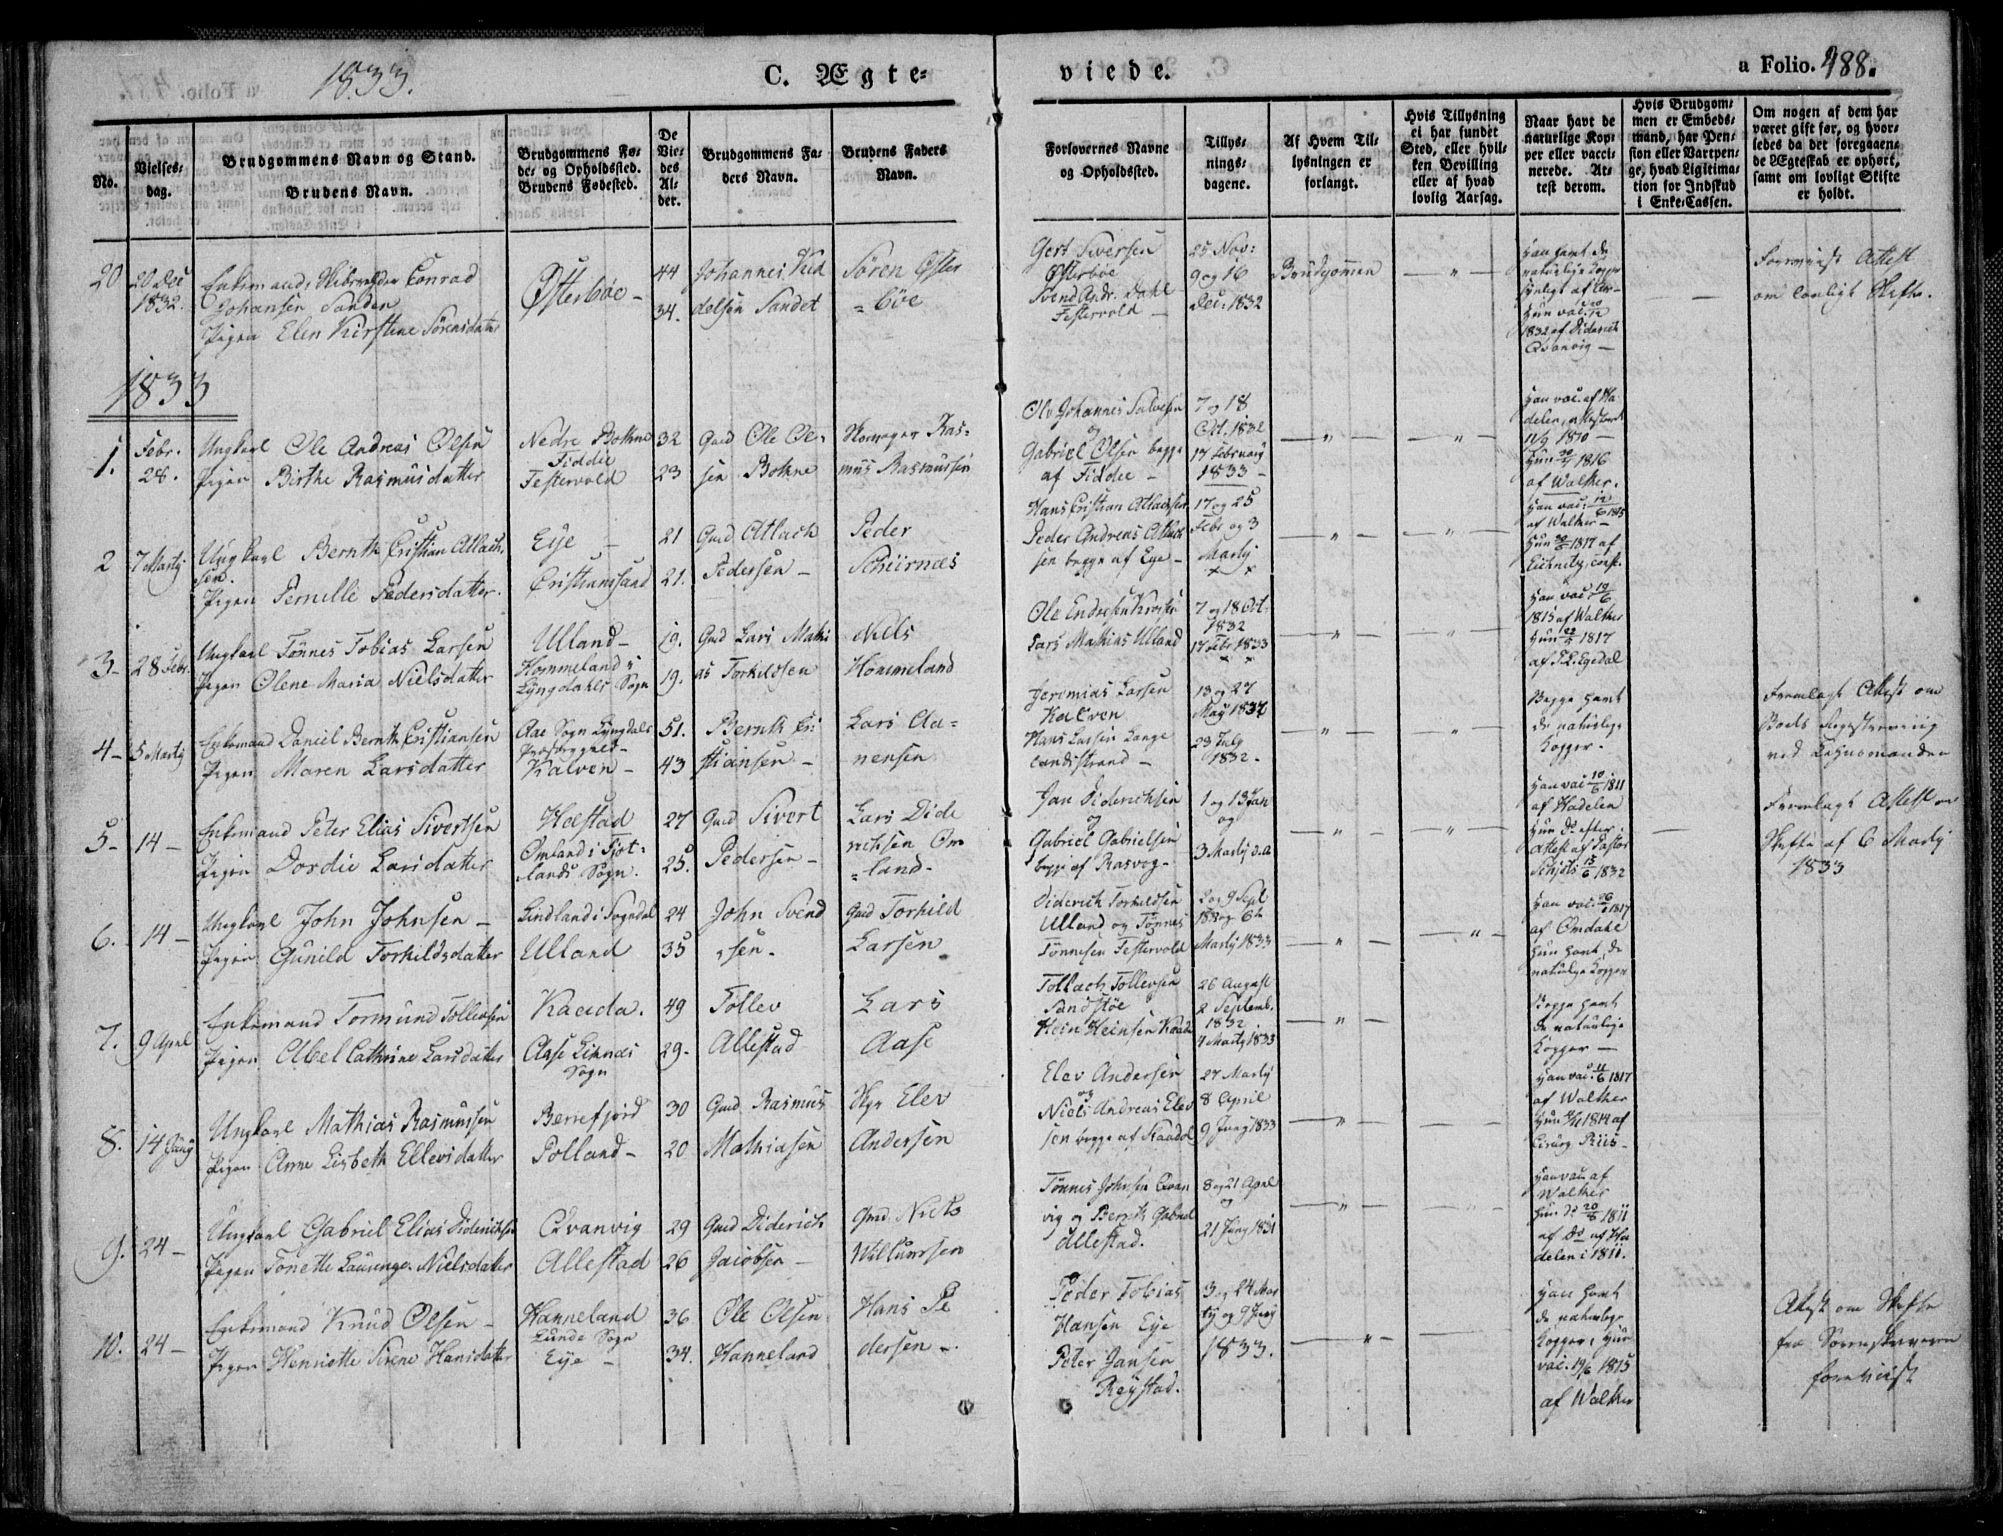 1833.
C. Ægte=
viede.
a Folio. 488.
No.
Vielses-
dag.
Brudgommens Navn og Stand.
Brudens Navn.
Brudgommens Fø-
de- og Opholdssted.
Brudens Fødested.
De
Vie-
des
Al-
der.
Brudgommens Fa-
ders Navn.
Brudens Faders
Navn.
Forlovernes Navne
og Opholdssted.
Tillys-
nings-
dagene.
Af Hvem Til-
lysningen er
forlangt.
Hvis Tillysning
ei har fundet
Sted, eller hvil-
ken Bevilling
eller af hvad
lovlig Aarsag.
Naar havt de
naturlige Kop-
per eller vacci-
nerede. At-
test derom.
Hvis Brudgom-
men er Embeds-
mand, har Pen-
sion eller Vartpen-
ge, hvad Ligitima-
tion for Indskud
i Enke-Cassen.
Om nogen af dem har
været gift før, og hvor-
ledes da det foregaaen-
de Ægteskab er ophørt,
samt om lovligt Skifte
er holdt.
20
20 Dec
1832.
Enkemand Conrad
Johansen Sanden
Pigen Elen Kirstine Sörensdatter
Østerböe -
44
34.
Johannes
delsen Sandet
Sören Øster
= böe
Gert Siversen
Østerböe
Svend Andr. Dahl
Festervold -
25 Nov:
9 og 16
Dec: 1832
Brudgommen
1832 af Diderich
Qvanvig -
Foreviist Attest
om lovligt Skifte.
1833
1.
Febr.
28.
Ungkarl Ole Andreas Olsen
Pigen Birthe Rasmusdatter
Nedre Bothne
Fiddie
Festervold
32
23
Gmd Ole Ol-
sen Bothne
Ras-
mus Rasmussen
Olv Johannes Salvesen
og
Gabriel Olsen begge
af Fiddie -
7 og 18
Oct. 1832
17 February
1833 -
Han vac. af Ha
delen,
11/9 1810 -
Hun 20/7 1816
af Walker.
2
7 Marty
Ungkarl Bernth Cristian Atlach-
sen.
Pigen Pernille Pedersdatter.
Eye -
Cristianssand
21
21.
Gmd Atlach
Pedersen -
Peder
Schiirnæs
Hans Cristian Atlachsen
Peder Andreas Atlach
sen begge af Eye -
17 og 25
Febr og 3
Marty
Han vac. 12/6 1815
af Walker -
Hun 30/6 1817 af
3-
28 Febr.
Ungkarl Tönnes Tobias Larsen
Pigen Olene Maria Nielsdatter
Ulland -
Hommeland i
Lyngdahls Sogn
19.
19.
Gmd Lars Mathi
as Torkildsen
Niels
Hommeland
Ole Endresen
Lars Mathias Ulland
7 og 18 Oct.
1832
17 Febr 1833
Han vac. 10/6
1815 af Walker
Hun 22/5 1817
af Egedal
4-
5 Marty
Enkemand Daniel Bernth Cristiansen
Pigen Maren Larsdatter
Aae Sogn Lyngdals
Præstegjeld -
Kalven -
51.
43
Bernth Cri
stiansen -
Lars Aa=
nensen
Jeremias Larsen
Kalven
Hans Larsen Lange
Landstrand -
13 og 27
May 1832
29 July
1832 -
Begge havt
de naturlige
Kopper -
Fremlagt Attest om
Boets Registrering
ved Lehnsmanden
5-
14 -
Enkemand Peter Elias Sivertsen
Pigen Dordie Larsdatter
Hæstad
Omland i Fjot-
lands Sogn.
27
25.
Gmd Sivert
Pedersen -
Lars Dide
richsen Om
= land -
Jan Diderichsen
og
Gabriel Gabrielsen
begge af Rasvog -
1 og 13 Jan
og
3 Marty d. A
Han vac. 10/6 1811
af Hadelen
Hun Do efter
Attest af Pastor
Schjöts 15/6 1832
Fremlagt Attest om
Skifte af 6 Marty
1833
6.
14 -
Ungkarl John Johnsen -
Pigen Gunild Torkildsdatter
Lindland i Sogndal
Ulland
24
35
John Svend
= sen -
Gmd Torkild
Larsen
Diderich Torkildsen
Ulland og Tönnes
Tönnesen Festervold
2 og 9 Sept
Marty 1833
af Omdahl
Hun havt de
naturlige Kopper
7.
9 April
Enkemand Tormund Tollevsen
Pigen Abel Cathrine Larsdatter
Kaada.
Aase Liknæs
Sogn
49
29 -
Tollev
Allestad
Lars
Aase
Tollach Tollevsen
Sandstöe
Hein Heinsen
26 August
2 Septemb.
1832
4 Marty 1833
Begge havt
de naturlige
Kopper -
8.
14 Juny
Ungkarl Mathias Rasmussen
Pigen Anne Lisbeth Ellevsdatter
Berrefjord
Polland -
30
20
Gmd Rasmus
Mathiasen
Elev
Andersen
Elev Andersen
og
Niels Andreas Elev
sen begge af
27 Marty
8 April
9 Juny 1833
Han vac. 11/6 1817
af Walker
Hun 1814 af
9.
24 -
Ungkarl Gabriel Elias Diderichsen
Pigen Tonette Laurenge Nielsdatter
Qvanvig
Allestad
29
26
Gmd Diderich
Jacobsen -
Gmd. Niels
Willumsen
Tönnes Johnsen Qvan
vig og Bernth Gabriel
Allestad.
8 og 21 April
og
21 Juny 1831
Han vac. af
Walker
Hun Do 20/6 1811
af Do af Ha
delen i 1811.
10.
24 -
Enkemand Knud Olsen -
Pigen Henriette Sirene Hansdatter
Hanneland
Lunde Sogn
Eye -
36
34.
Ole Olsen
Hanneland
Hans Pe
dersen -
Peder Tobias
Hansen Eye
Peter Jansen
Reystad.
3 og 24 Mar
ty og 9 Juny
1833.
Han havt
de naturlige
Kopper, Hun
vac. 19/6 1815
af Walker
Attest om Skifte
fra Sorenskriveren
foreviist